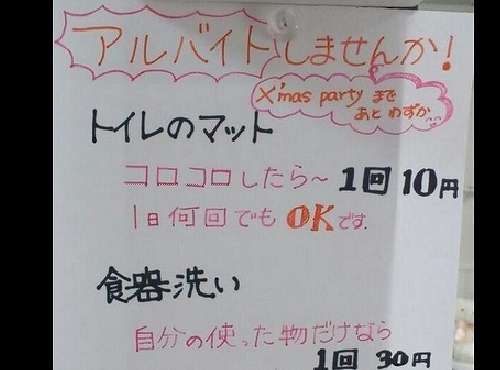 アルバイトしませんか!
X'mas party まで
あと わずか
トイレのマット
コロコロしたら~ 1回10円
1日何回でもOKです.
食器洗い
自分の使った物だけなら
1回 30円